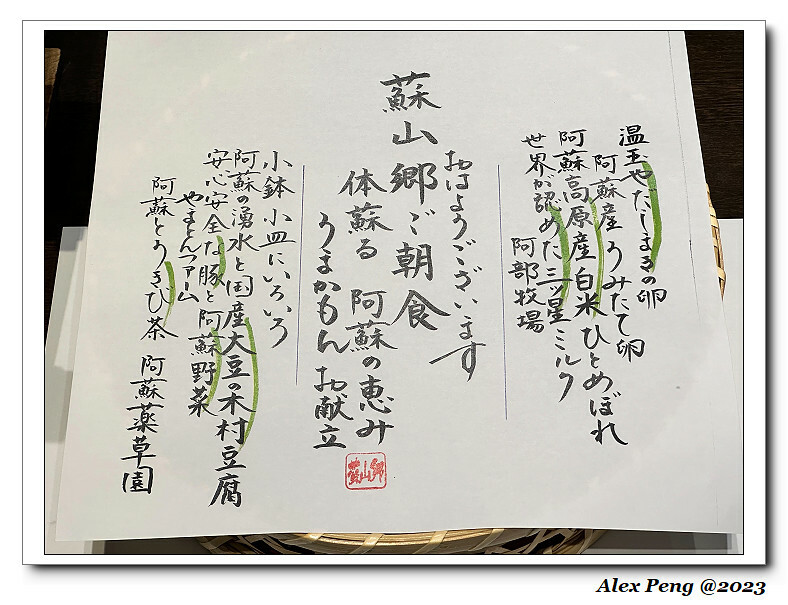 温玉やだしまきの卵
阿蘇産うみたて卵
阿蘇高原産白米ひとめぼれ
世界が認めた三ッ星ミルク
阿部牧場
おはようございます
蘇山郷ご朝食
体蘇る 阿蘇の恵み
うまかもんお献立
蘇山郷
小鉢 小皿にいろいろ
阿蘇の湧水と国産大豆の木村豆腐
安心安全な豚と阿蘇野菜
やまとんファーム
阿蘇とうきび茶 阿蘇薬草園
Alex Peng @2023